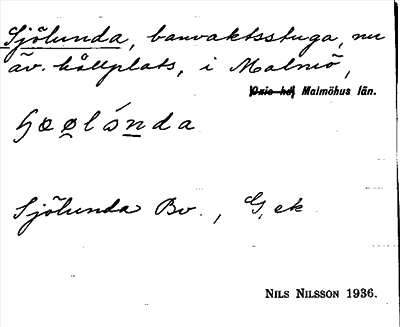 Sjölunda, banvaktsstuga, nu
äv. hållplats, i Malmö,
Oxie hd Malmöhus län.
Sjölunda Bv., G. ek
NILS NILSSON 1936.